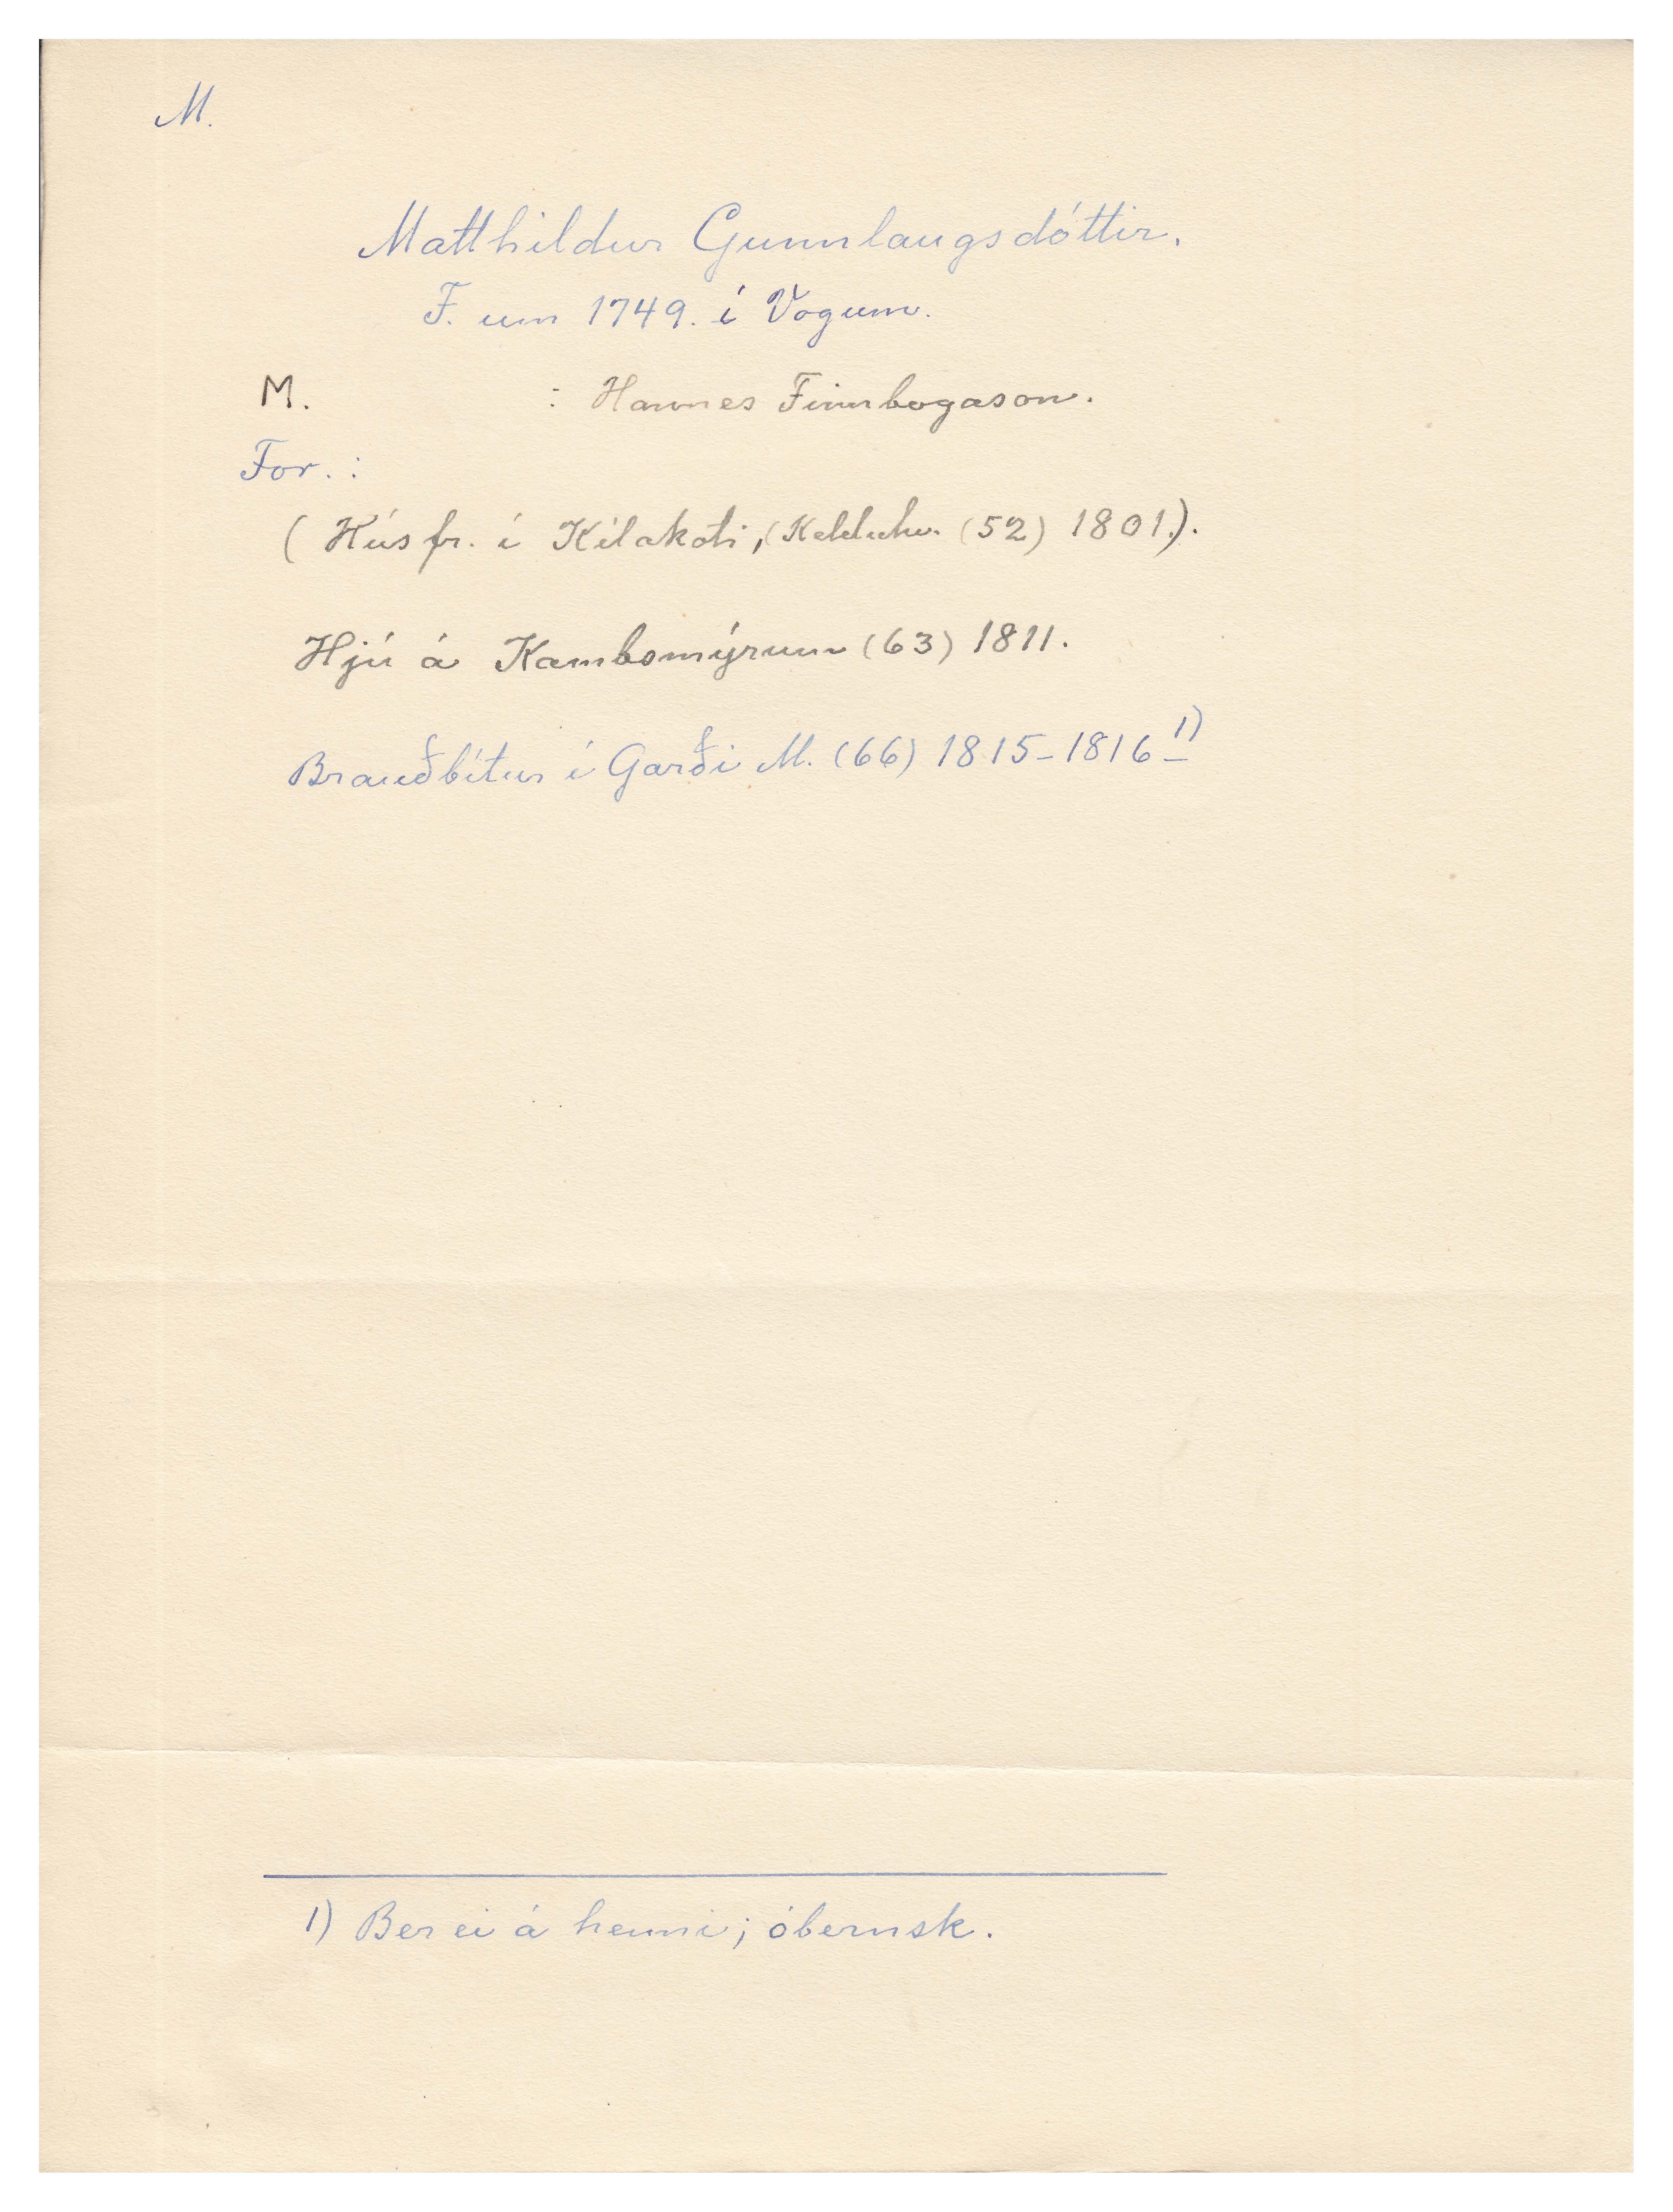 M.
Matthildur Gunnlaugsdóttir.
F. um 1749. í Vogum.
M. : Hannes Finnbogason.
For. :
( Húsfr. í Kílakoti, (Kelduhv. (52) 1801.).
Hjú á Kambsmýrum (63) 1811.
Brauðbítur í Garði M. (66) 1815-1816 1)
1) Ber ei á henni; óbernsk.